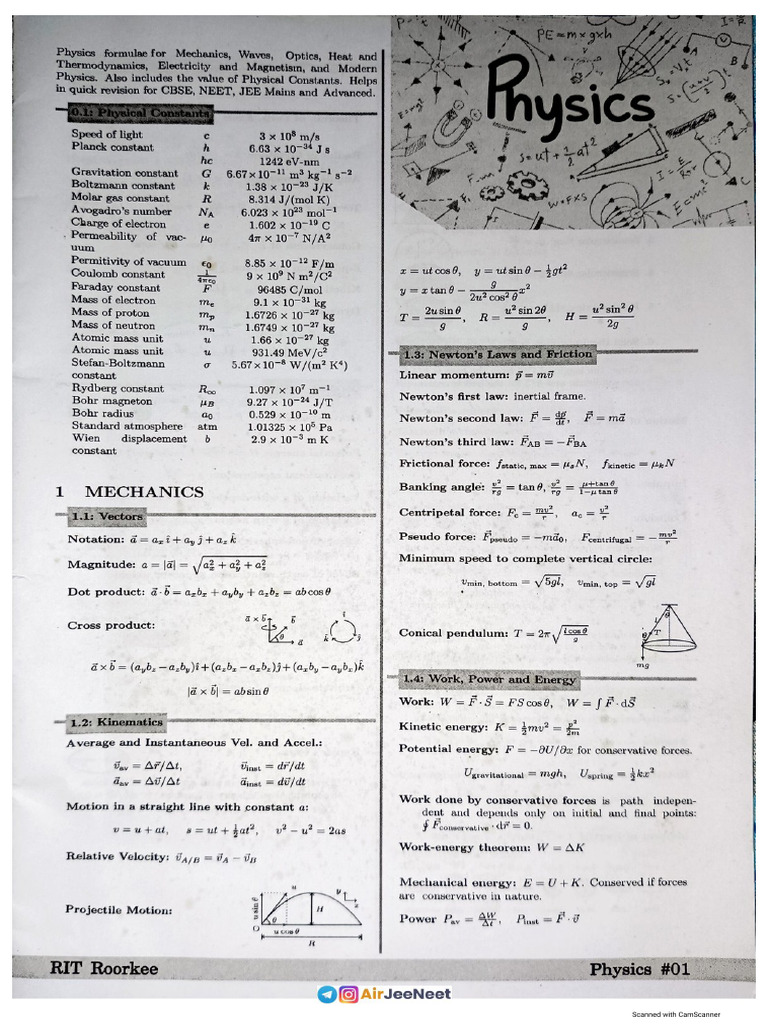 Physics formulae for Mechanics, Waves, Optics, Heat and
Thermodynamics, Electricity and Magnetism, and Modern
Physics. Also includes the value of Physical Constants. Helps
in quick revision for CBSE, NEET, JEE Mains and Advanced.
0.1: Physical Constants
Speed of light c 3 × 10⁸ m/s
Planck constant h 6.63 × 10⁻³⁴ J s
hc 1242 eV-nm
Gravitation constant G 6.67×10⁻¹¹ m³ kg⁻¹ s⁻²
Boltzmann constant k 1.38 × 10⁻²³ J/K
Molar gas constant R 8.314 J/(mol K)
Avogadro's number N_A 6.023 × 10²³ mol⁻¹
Charge of electron e 1.602 × 10⁻¹⁹ C
Permeability of vac- μ₀ 4π × 10⁻⁷ N/A²
uum
Permitivity of vacuum ϵ₀ 8.85 × 10⁻¹² F/m
Coulomb constant 1/4πϵ₀ 9 × 10⁹ N m²/C²
Faraday constant F 96485 C/mol
Mass of electron m_e 9.1 × 10⁻³¹ kg
Mass of proton m_p 1.6726 × 10⁻²⁷ kg
Mass of neutron m_n 1.6749 × 10⁻²⁷ kg
Atomic mass unit u 1.66 × 10⁻²⁷ kg
Atomic mass unit u 931.49 MeV/c²
Stefan-Boltzmann σ 5.67×10⁻⁸ W/(m² K⁴)
constant
Rydberg constant R_∞ 1.097 × 10⁷ m⁻¹
Bohr magneton μ_B 9.27 × 10⁻²⁴ J/T
Bohr radius a₀ 0.529 × 10⁻¹⁰ m
Standard atmosphere atm 1.01325 × 10⁵ Pa
Wien displacement b 2.9 × 10⁻³ m K
constant
1 MECHANICS
1.1: Vectors
Notation: a⃗ = a_x î + a_y ĵ + a_z k̂
Magnitude: a = |a⃗| = √(a_x² + a_y² + a_z²)
Dot product: a⃗ · b⃗ = a_x b_x + a_y b_y + a_z b_z = ab cos θ
Cross product: a⃗ × b⃗ b⃗ θ a⃗ î ĵ k̂
a⃗ × b⃗ = (a_y b_z − a_z b_y)î + (a_z b_x − a_x b_z)ĵ + (a_x b_y − a_y b_x)k̂
|a⃗ × b⃗| = ab sin θ
1.2: Kinematics
Average and Instantaneous Vel. and Accel.:
v⃗_av = Δr⃗/Δt, v⃗_inst = dr⃗/dt
a⃗_av = Δv⃗/Δt a⃗_inst = dv⃗/dt
Motion in a straight line with constant a:
v = u + at, s = ut + ½at², v² − u² = 2as
Relative Velocity: v⃗_A/B = v⃗_A − v⃗_B
Projectile Motion: u sin θ u θ O u cos θ H R y x
Physics
PE = m × g × h
S = ut + ½ at²
W = F × S
E = mc²
x = ut cos θ, y = ut sin θ − ½gt²
y = x tan θ − g/(2u² cos² θ) x²
T = 2u sin θ/g, R = u² sin 2θ/g, H = u² sin² θ/2g
1.3: Newton's Laws and Friction
Linear momentum: p⃗ = mv⃗
Newton's first law: inertial frame.
Newton's second law: F⃗ = dp⃗/dt, F⃗ = ma⃗
Newton's third law: F⃗_AB = −F⃗_BA
Frictional force: f_static, max = μ_s N, f_kinetic = μ_k N
Banking angle: v²/rg = tan θ, v²/rg = (μ+tan θ)/(1−μ tan θ)
Centripetal force: F_c = mv²/r, a_c = v²/r
Pseudo force: F⃗_pseudo = −ma⃗₀, F_centrifugal = −mv²/r
Minimum speed to complete vertical circle:
v_min, bottom = √5gl, v_min, top = √gl
Conical pendulum: T = 2π√(l cos θ/g) θ l T θ mg
1.4: Work, Power and Energy
Work: W = F⃗ · S⃗ = FS cos θ, W = ∫ F⃗ · dS⃗
Kinetic energy: K = ½mv² = p²/2m
Potential energy: F = −∂U/∂x for conservative forces.
U_gravitational = mgh, U_spring = ½kx²
Work done by conservative forces is path indepen-
dent and depends only on initial and final points:
∮ F⃗_conservative · dr⃗ = 0.
Work-energy theorem: W = ΔK
Mechanical energy: E = U + K. Conserved if forces
are conservative in nature.
Power P_av = ΔW/Δt, P_inst = F⃗ · v⃗
RIT Roorkee Physics #01
AirJeeNeet
Scanned with CamScanner